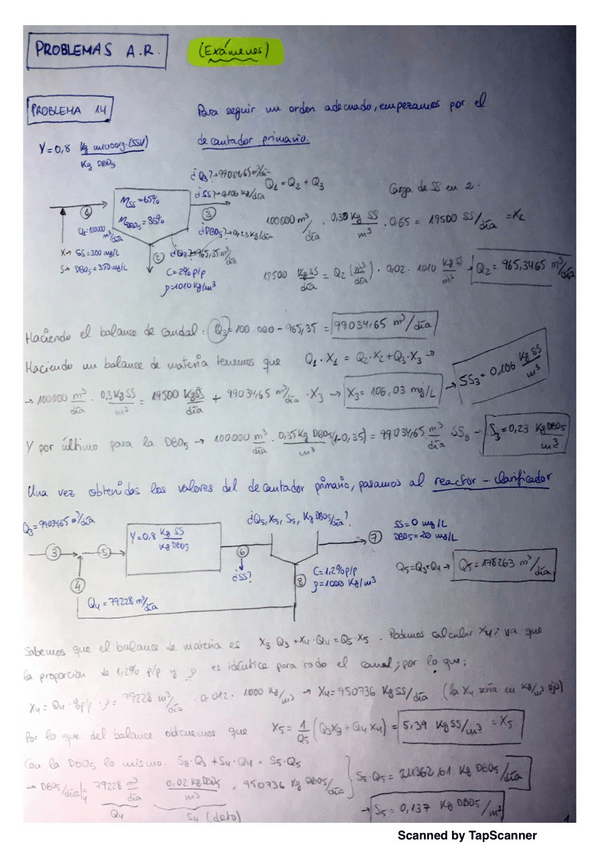 PROBLEMAS A.R. (Exámenes)
PROBLEMA 14
Para seguir un orden adecuado, empezamos por el
decantador primario.
Y = 0,8 kg microorg. (SSV) / kg DBO5
¿Q3? = 99034,65 m³/día
¿SS? = 0,106 kg/día
¿DBO5? = 0,23 kg/día
M SS = 65%
M DBO5 = 35%
1
3
2
Q1 = 100000 m³/día
X → SS = 300 mg/L
S → DBO5 = 350 mg/L
¿Q2? = 965,35 m³/día
C = 2% p/p
ρ = 1010 kg/m³
Q1 = Q2 + Q3
Carga de SS en 2:
100000 m³/día · 0,30 kg SS/m³ · 0,65 = 19500 SS/día = X2
19500 kg SS/día = Q2 (m³/día) · 0,02 · 1010 kg/m³ → Q2 = 965,3465 m³/día
Haciendo el balance de caudal: Q3 = 100.000 - 965,35 = 99034,65 m³/día
Haciendo un balance de materia tenemos que Q1 · X1 = Q2 · X2 + Q3 · X3 →
→ 100000 m³/día · 0,3 kg SS/m³ = 19500 kg SS/día + 99034,65 m³/día · X3 → X3 = 106,03 mg/L → SS3 = 0,106 kg SS/m³
Y por último para la DBO5 → 100000 m³/día · 0,35 kg DBO5/m³ (1-0,35) = 99034,65 m³/día · S3 → S3 = 0,23 kg DBO5/m³
Una vez obtenidos los valores del decantador primario, pasamos al reactor - clarificador
Q3 = 99034,65 m³/día
¿Q5, X5, S5, kg DBO5/día?
3
5
Y = 0,8 kg SS / kg DBO5
6
¿SS?
7
SS = 0 mg/L
DBO5 = 20 mg/L
C = 1,2% p/p
ρ = 1000 kg/m³
8
4
Q4 = 79228 m³/día
Q5 = Q3 + Q4 → Q5 = 178263 m³/día
Sabemos que el balance de materia es X3 · Q3 + X4 · Q4 = Q5 · X5. Podemos calcular X4, ya que
la proporción de 1,2% p/p y ρ es idéntica para todo el canal, por lo que:
X4 = Q4 · %p/p · ρ = 79228 m³/día · 0,012 · 1000 kg/m³ → X4 = 950736 kg SS/día (la X4 sería en kg/m³ ojo)
Por lo que del balance obtenemos que X5 = 1/Q5 (Q3X3 + Q4X4) = 5,39 kg SS/m³ = X5
Con la DBO5 lo mismo. S3 · Q3 + S4 · Q4 = S5 · Q5
→ DBO5/día|4 = 79228 m³/día · 0,02 kg DBO5/m³ = 950736 kg DBO5/día } S5 · Q5 = kg DBO5/día
Q4 S4 (dato) → S5 = 0,137 kg DBO5/m³
Scanned by TapScanner